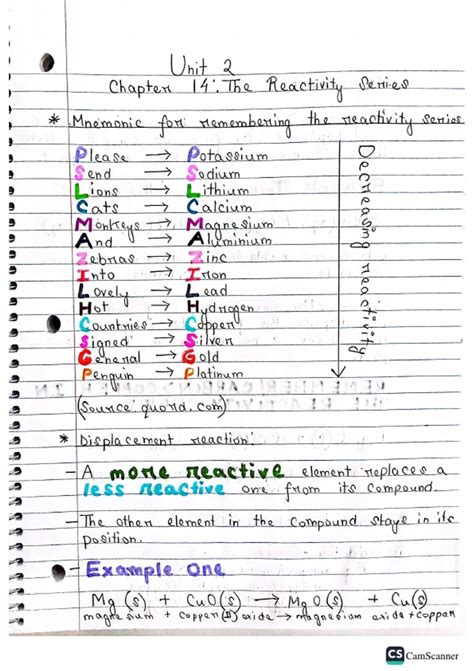 Unit 2
Chapter 14: The Reactivity Series
* Mnomonic for remembering the reactivity series
Please → Potassium
Send → Sodium
Lions → Lithium
Cats → Calcium
Monkeys → Magnesium
And → Aluminium
Zebras → Zinc
Into → Iron
Lovely → Lead
Hot → Hydrogen
Countries → Copper
Signed → Silver
General → Gold
Penguin → Platinum
Decreasing reactivity
(Source: quora.com)
* Displacement reaction:
- A more reactive element replaces a
less reactive one from its compound.
- The other element in the compound stays in its
position.
- Example One
Mg (s) + CuO(s) → MgO(s) + Cu(s)
magnesium + copper(II) oxide → magnesium oxide + copper
CS CamScanner